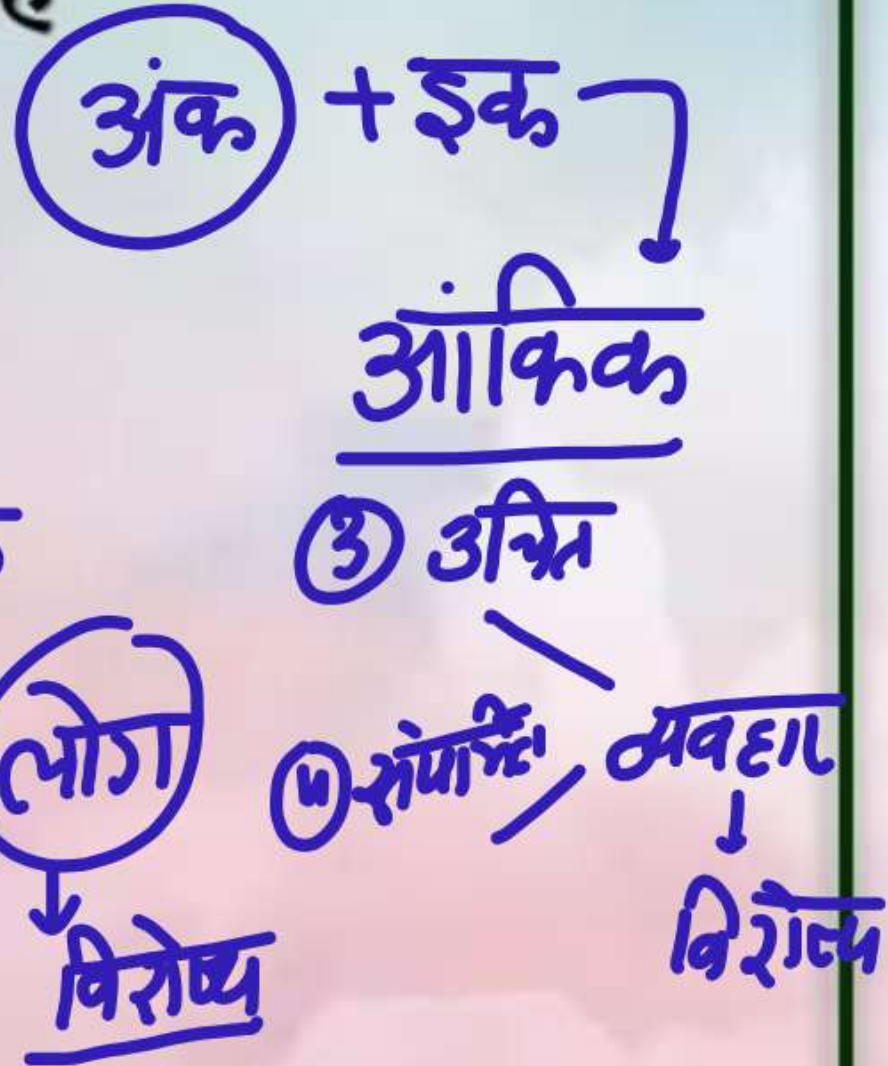 अंक + इक
आंकिक
③ उचित
लोग
व्यवहार
विशेष्य
विशेष्य